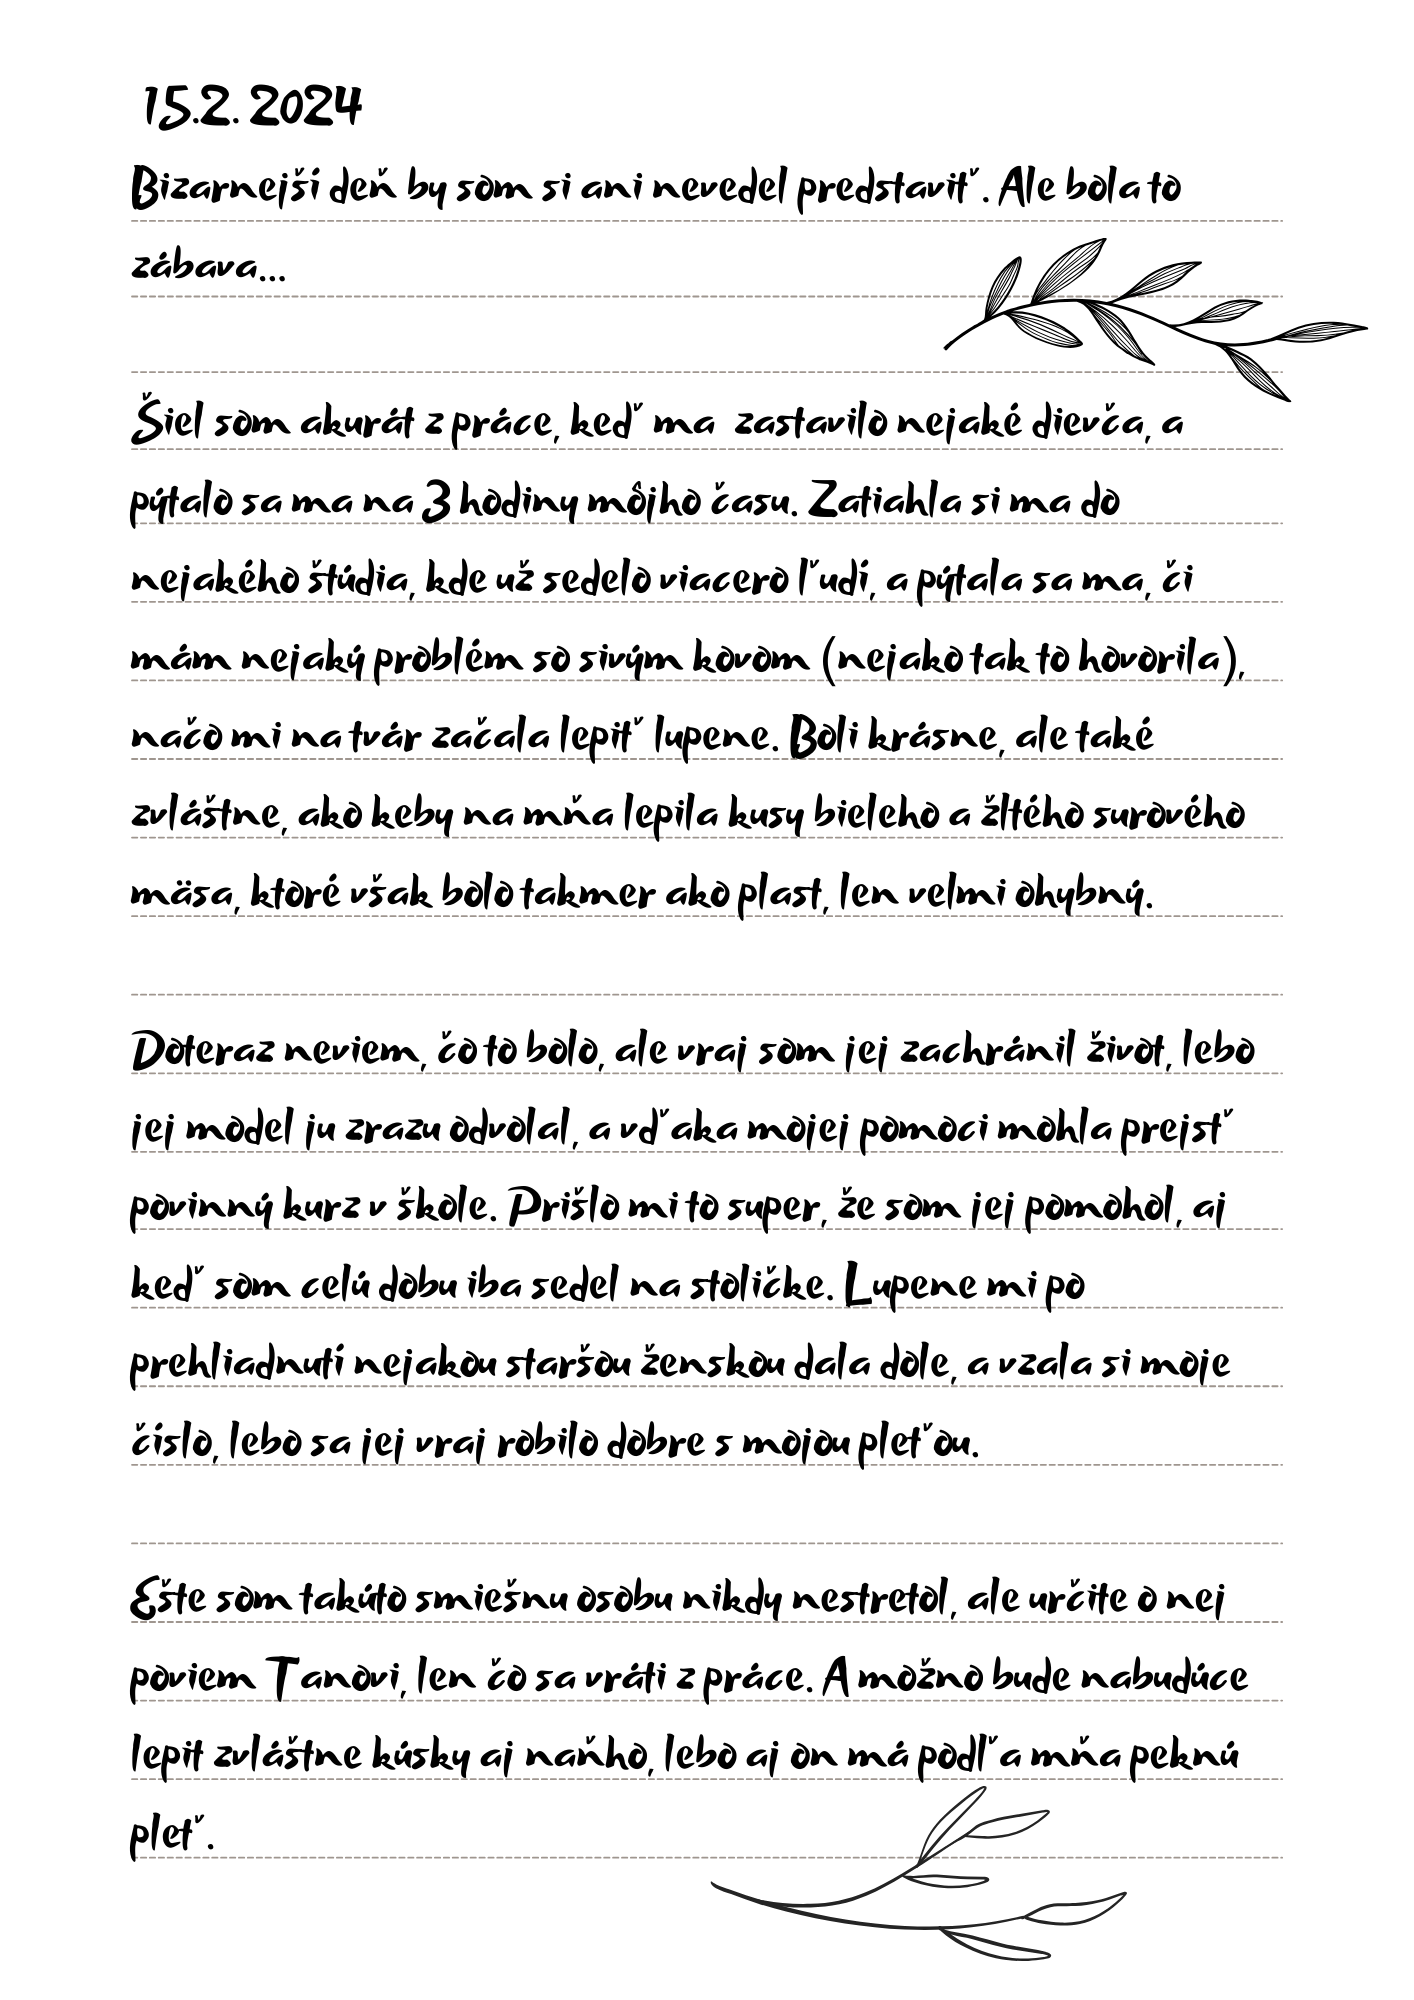 15.2. 2024
Bizarnejší deň by som si ani nevedel predstaviť. Ale bola to
zábava...
Šiel som akurát z práce, keď ma zastavilo nejaké dievča, a
pýtalo sa ma na 3 hodiny môjho času. Zatiahla si ma do
nejakého štúdia, kde už sedelo viacero ľudí, a pýtala sa ma, či
mám nejaký problém so sivým kovom (nejako tak to hovorila),
načo mi na tvár začala lepiť lupene. Boli krásne, ale také
zvláštne, ako keby na mňa lepila kusy bieleho a žltého surového
mäsa, ktoré však bolo takmer ako plast, len velmi ohybný.
Doteraz neviem, čo to bolo, ale vraj som jej zachránil život, lebo
jej model ju zrazu odvolal, a vďaka mojej pomoci mohla prejsť
povinný kurz v škole. Prišlo mi to super, že som jej pomohol, aj
keď som celú dobu iba sedel na stoličke. Lupene mi po
prehliadnutí nejakou staršou ženskou dala dole, a vzala si moje
číslo, lebo sa jej vraj robilo dobre s mojou pleťou.
Ešte som takúto smiešnu osobu nikdy nestretol, ale určite o nej
poviem Tanovi, len čo sa vráti z práce. A možno bude nabudúce
lepit zvláštne kúsky aj naňho, lebo aj on má podľa mňa peknú
pleť.